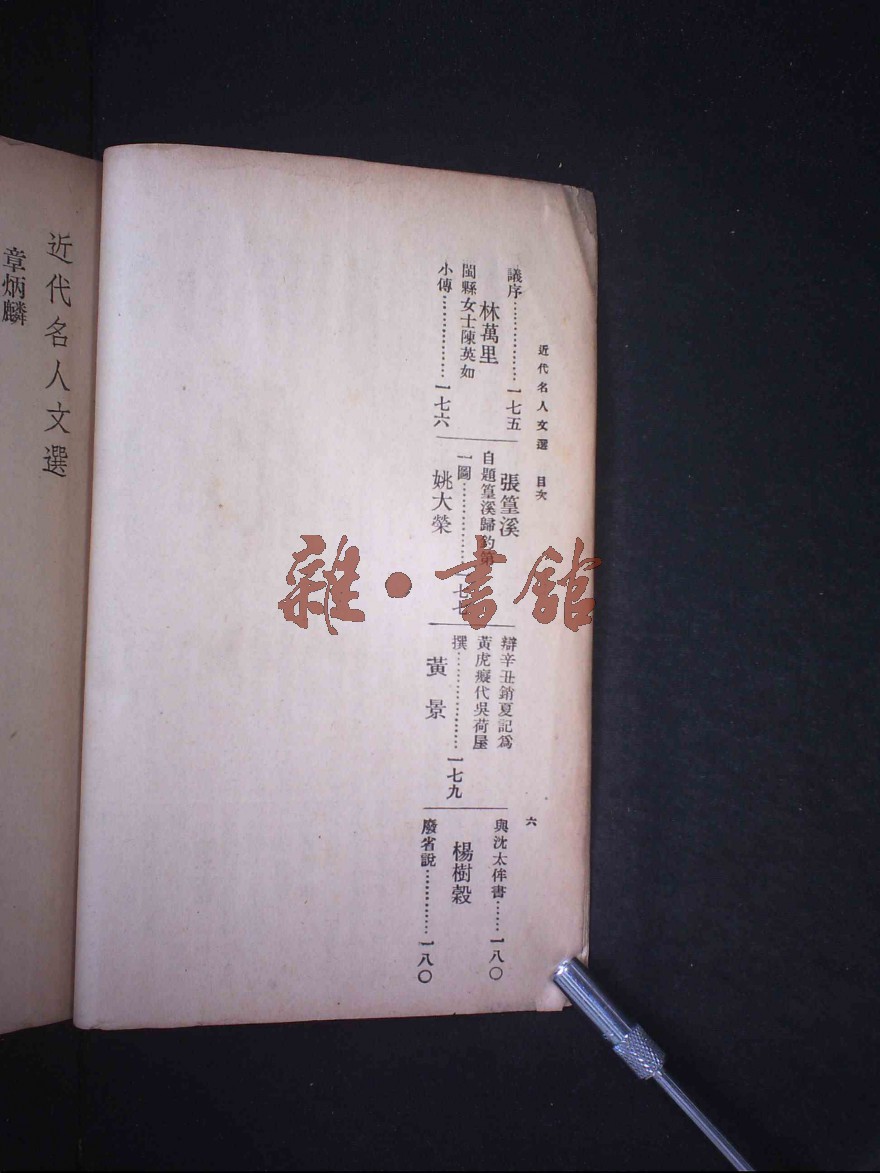 近代名人文選 目次
六
議序……………一七五
林萬里
閩縣女士陳英如
小傳……………一七六
張篁溪
自題篁溪歸釣第
一圖……………一七七
姚大榮
辯辛丑銷夏記爲
黃虎癡代吳荷屋
撰……………一七九
黃景
與沈太侔書……一八〇
楊樹穀
廢省說……………一八〇
近代名人文選
章炳麟
雜·書館